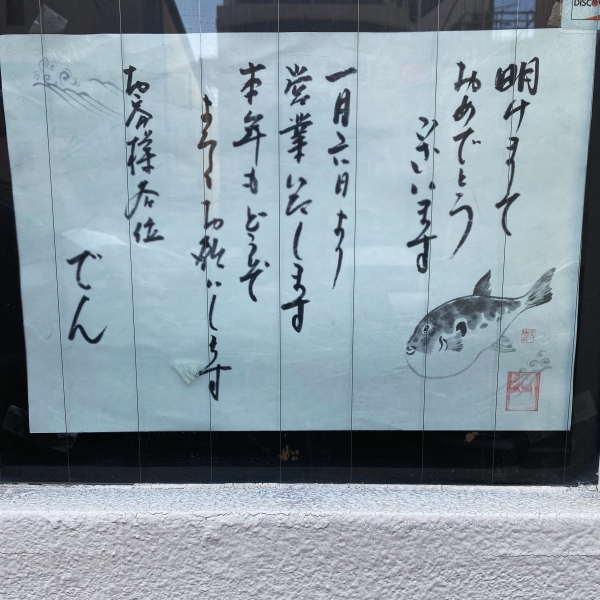 明けまして
おめでとう
ございます
一月六日より
営業いたします
本年もどうぞ
よろしくお願いします
お客様各位
でん
DISC